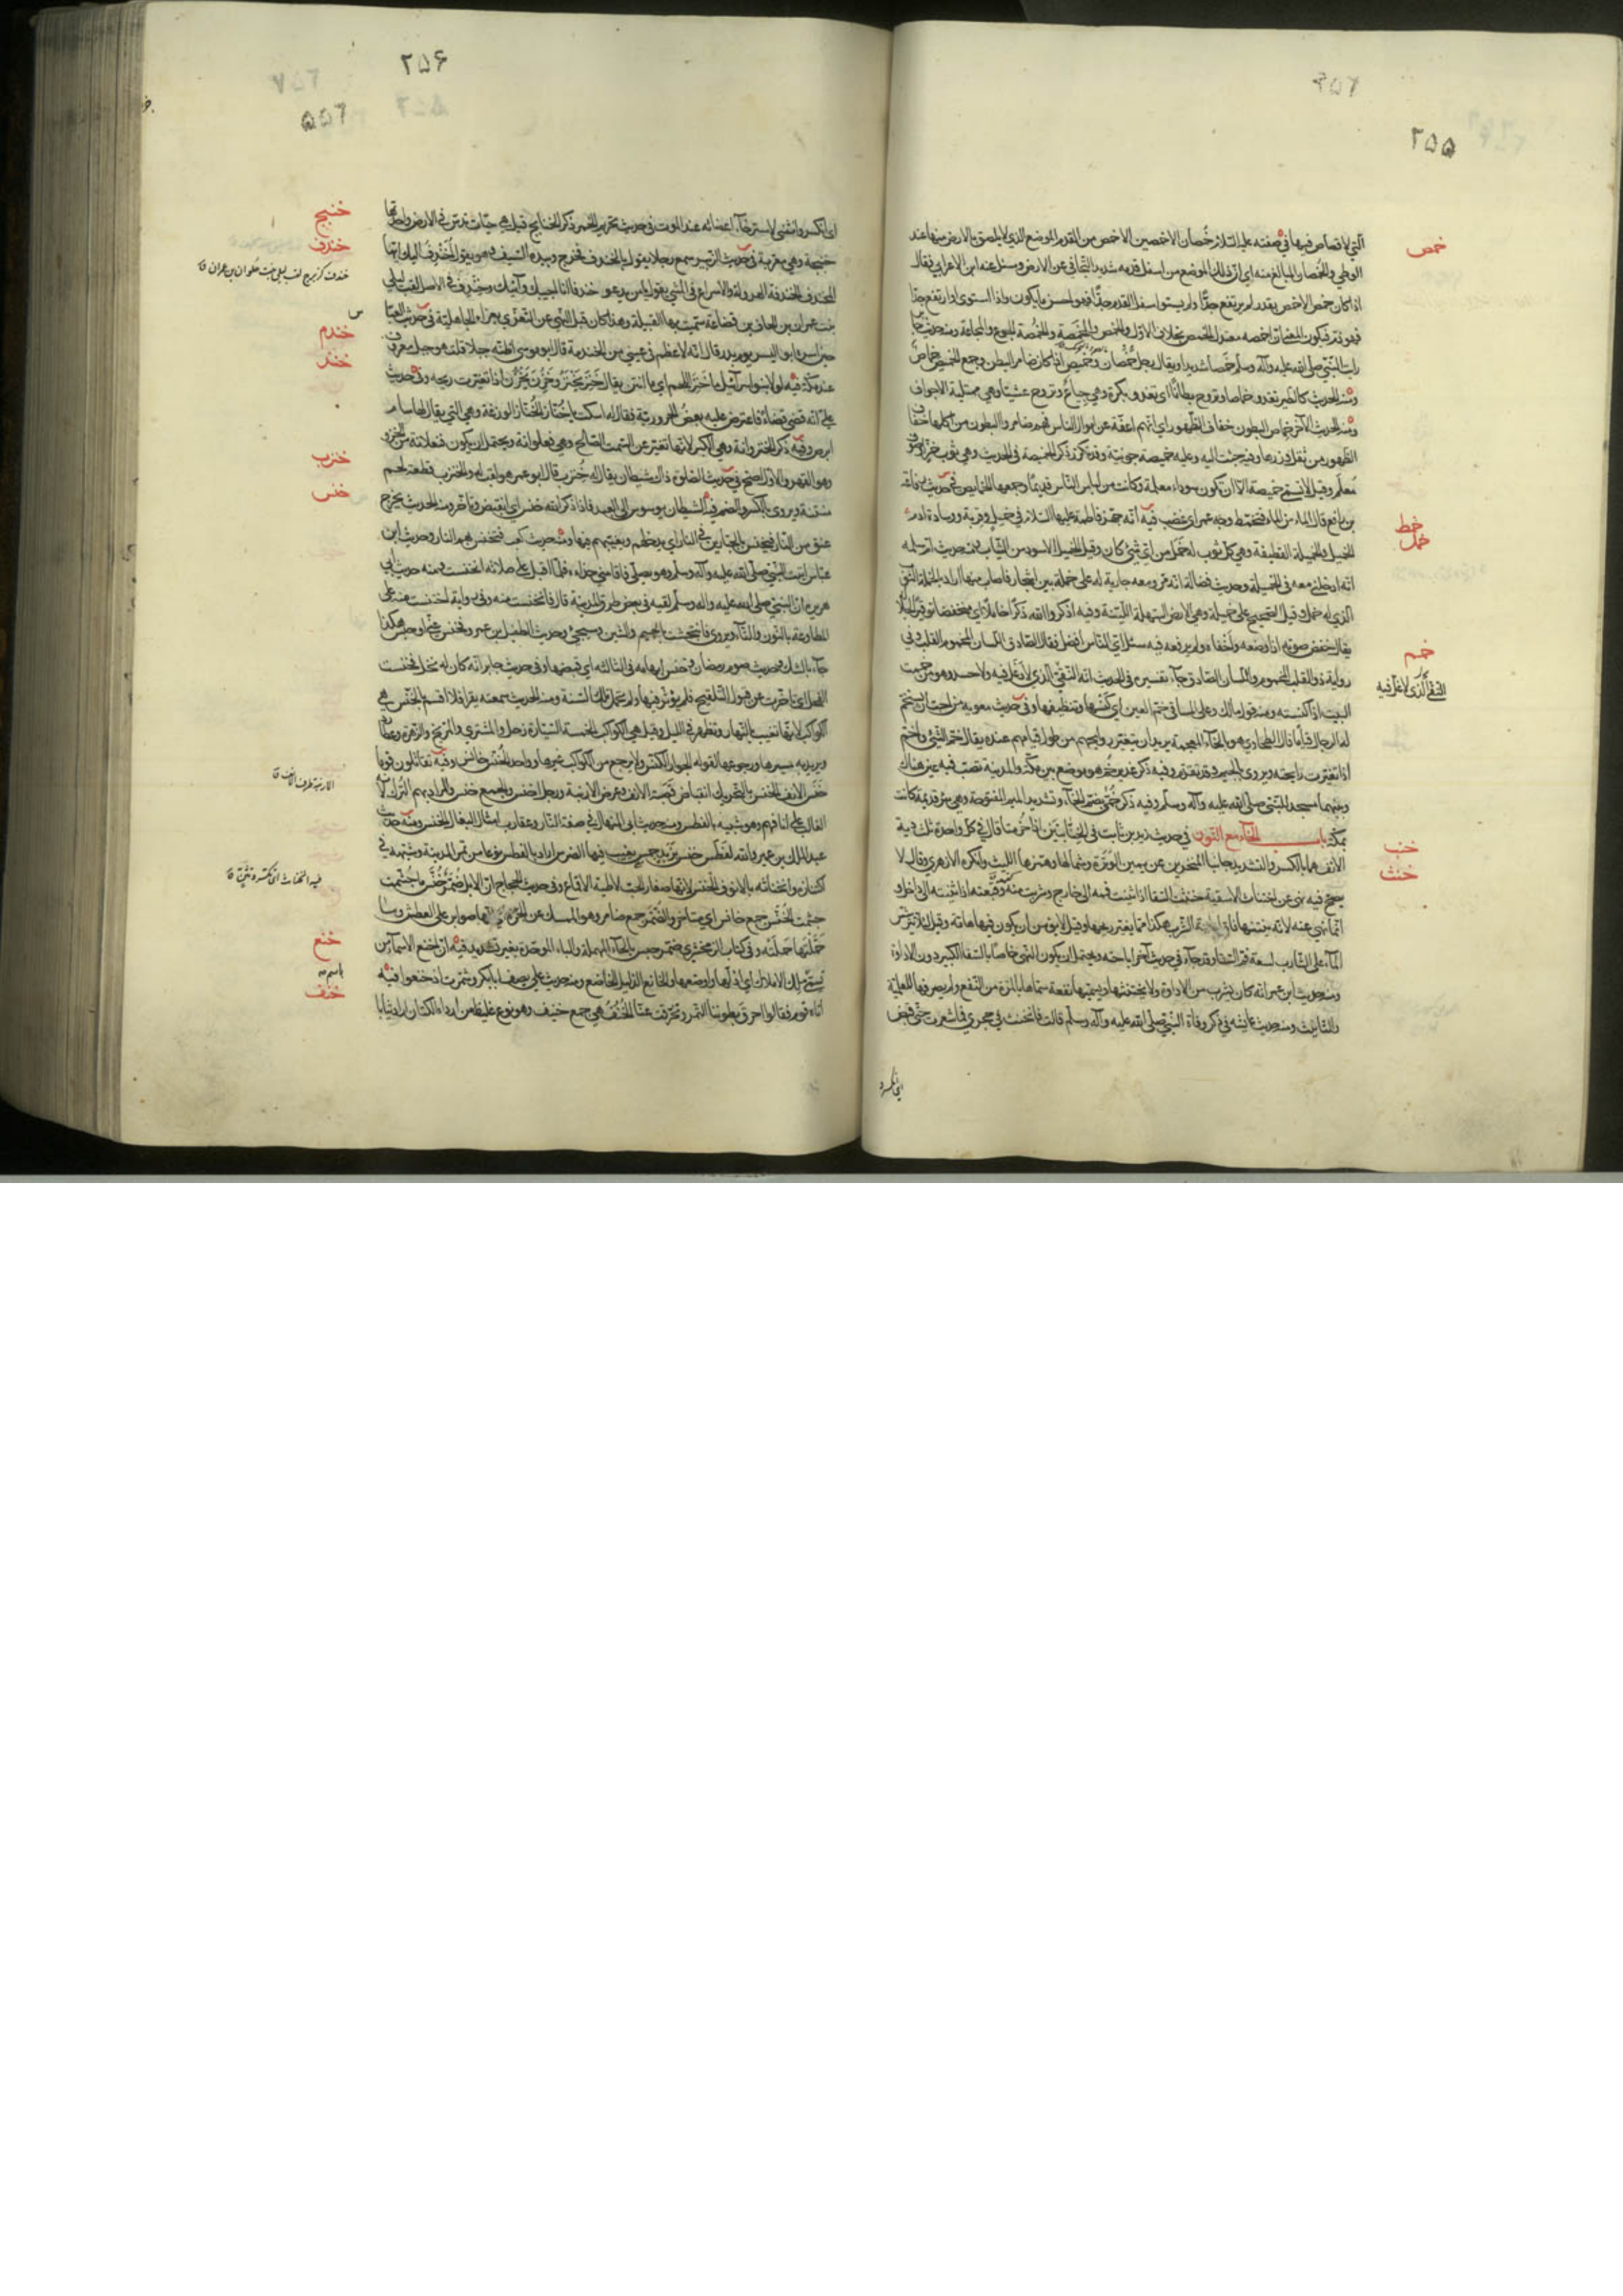 ۲۵۵
خمص
التي لا قصاص فيها في صفته عليه السلام خمصان الاخمصين الاخمص من القدم الموضع الذي لا يلصق بالارض منها عند
الوطي والخمصان المبالغ منه اي ان ذلك الموضع من اسفل قدمه شديد التجافي عن الارض وسئل عنه ابن الاعرابي فقال
اذا كان خمص الاخمص بقدر لم يرتفع جدا ولم يستو اسفل القدم جدا فهو احسن ما يكون واذا استوى او ارتفع جدا
فهو ذم فيكون المعنى ان اخمصه معتدل الخمص بخلاف الاول والخمص والخمصة والمخمصة الجوع والمجاعة ومنه حديث جابر
رايت بالنبي صلى الله عليه وآله وسلم خمصا شديدا ويقال رجل خمصان وخميص اذا كان ضامر البطن وجمع الخميص خماص
ومنه الحديث كالطير تغدو خماصا وتروح بطانا اي تغدو بكرة وهي جياع وتروح عشيا وهي ممتلية الاجواف
ومنه الحديث الآخر خماص البطون خفاف الظهور اي انهم اعفة عن اموال الناس فهم ضامروا البطون من اكلها خفاف
الظهور من ثقل وزرها وفيه جئت اليه وعليه خميصة جونية وقد تكرر ذكر الخميصة في الحديث وهي ثوب خز او صوف
معلم وقيل لا تسمى خميصة الا ان تكون سوداء معلمة وكانت من لباس الناس قديما وجمعها الخمايص في حديث رفاعة
خمط
بن رافع قال الماء من الماء فتخمط وجه عمر اي غضب فيه انه جهز فاطمة عليها السلام في خميل وقربة ووسادة ادم
خمل
الخميل والخميلة القطيفة وهي كل ثوب له خمل من اي شيئ كان وقيل الخميل الاسود من الثياب ومنه حديث ام سلمة
انه ادخلني معه في الخميلة وحديث فضالة انه مر ومعه جارية له على خملة بين اشجار فاصاب منها اراد بالخملة الثوب
الذي له خمل وقيل الصحيح على خميلة وهي الارض السهلة اللينة وفيه اذكروا الله ذكرا خاملا اي منخفضا توقيرا لجلاله
يقال خفض صوته اذا وضعه واخفاه ولم يرفعه فيه سئل اي الناس افضل فقال الصادق اللسان المخموم القلب وفي
خمم
رواية ذو القلب المخموم واللسان الصادق جاء تفسيره في الحديث انه النقي الذي لا غل فيه ولا حسد وهو من خممت
النقي الذي لا غل فيه
البيت اذا كنسته ومنه قول مالك وعلى المساقي خم العين اي كنسها وتنظيفها وفي حديث معوية من احب ان يستخم
له الرجال قياما قال الطحاوي هو بالخاء المعجمة يريد ان تتغير روايحهم من طول قيامهم عنده يقال خم الشيئ واخم
اذا تغيرت رايحته ويروى بالجيم وقد تقدم وفيه ذكر غدير خم هو موضع بين مكة والمدينة تصب فيه عين هناك
وبينهما مسجد للنبي صلى الله عليه وآله وسلم وفيه ذكر خمى بضم الخاء وتشديد الميم المفتوحة وهي بئر قديمة كانت
خنب
بمكة باب الخاء مع النون في حديث زيد بن ثابت في الخنابتين اذا خرمتا قال في كل واحدة ثلث دية
الانف هما بالكسر والتشديد جانبا المنخرين عن يمين الوترة وشمالها وهمزها الليث وانكره الازهري وقال لا
خنث
يصح فيه نهى عن اختناث الاسقية خنثت السقا اذا ثنيت فمه الى خارج وشربت منه وقبعته اذا ثنيته الى داخل و
انما نهى عنه لانه ينتنها فان ادامة الشرب هكذا مما يغير ريحها وقيل لا يؤمن ان يكون فيها هامة وقيل لئلا يترشش
الماء على الشارب لسعة فم السقا وقد جاء في حديث آخر اباحته ويحتمل ان يكون النهي خاصا بالسقا الكبير دون الاداوة
ومنه حديث ابن عمر انه كان يشرب من الاداوة ولا يختنثها ويسميها نفعة سماها بالمرة من النفع ولم يصرفها للعلمية
والتانيث ومنه حديث عايشة في ذكر وفاة النبي صلى الله عليه وآله وسلم قالت فانخنث في حجري فما شعرت حتى قبض
اي انكسر
۲۵۶
۲۵۵
خنبج
اي انكسر وانثنى لاسترخاء اعضائه عند الموت في حديث تحريم الخمر ذكر الخنابج قيل هي حباب تدس في الارض واحدتها
خندف
خنبجة وهي معربة في حديث الزبير سمع رجلا يقول يا لخندف فخرج وبيده السيف وهو يقول اخندف اليك ايها
خندف كزبرج لقب ليلى بنت حلوان بن عمران ق
المخندف الخندفة الهرولة والاسراع في المشي يقول يا من يدعو خندفا انا اجيبك وآتيك وخندف في الاصل لقب ليلى
بنت عمران بن الحاف بن قضاعة سميت بها القبيلة وهذا كان قبل النهي عن التعزي بعزاء الجاهلية في حديث العباس
خندم
حين اسره ابو اليسر يوم بدر قال انه لاعظم في عيني من الخندمة قال ابو موسى اظنه جبلا قلت هو جبل معروف
خنز
عند مكة فيه لولا بنو اسرائيل ما خنز اللحم اي ما انتن يقال خنز يخنز وخزن يخزن اذا تغيرت ريحه وفي حديث
علي انه قضى قضاء فاعترض عليه بعض الحرورية فقال له اسكت يا خناز الخناز الوزغة وهي التي يقال لها سام
ابرص وفيه ذكر الخنزوانة وهي الكبر لانها تغير عن السمت الصالح وهي فعلوانة ويحتمل ان يكون فنعلانة من الخزو
خنزب
وهو القهر والاول اصح في حديث الصلوة ذاك شيطان يقال له خنزب قال ابو عمر هو لقب له والخنزب قطعة لحم
خنس
منتنة ويروى بالكسر والضم فيه الشيطان يوسوس الى العبد فاذا ذكر الله خنس اي انقبض وتاخر ومنه الحديث يخرج
عنق من النار فتخنس بالجبارين في النار اي يدخلهم ويغيبهم فيها ومنه حديث كعب فتخنس بهم النار وحديث ابن
عباس اتيت النبي صلى الله عليه وآله وسلم وهو يصلي فاقامني حذاءه فلما اقبل على صلاته انخنست ومنه حديث ابي
هريرة ان النبي صلى الله عليه وآله وسلم لقيه في بعض طرق المدينة قال فانخنست منه وفي رواية اختنست منه على
المطاوعة بالنون والتاء ويروى فانتجشت بالجيم والشين وسيجيئ وحديث الطفيل بن عمير فخنس عني او حبس هكذا
جاء بالشك وحديث صوم رمضان وخنس ابهامه في الثالثة اي قبضها وفي حديث جابر انه كان له نخل فخنست
النخل اي تاخرت عن قبول التلقيح فلم يؤثر فيها ولم تحمل تلك السنة ومنه الحديث سمعته يقرا فلا اقسم بالخنس هي
الكواكب لانها تغيب بالنهار وتظهر في الليل وقيل هي الكواكب الخمسة السيارة زحل والمشتري والمريخ والزهرة وعطارد
ويريد به مسيرها ورجوعها لقوله الجوار الكنس ولا يرجع من الكواكب غيرها وواحد الخنس خانس وفيه تقاتلون قوما
الارنبة طرف الانف ق
خنس الانف الخنس بالتحريك انقباض قصبة الانف وعرض الارنبة ورجل اخنس والجمع خنس والمراد بهم الترك لانه
الغالب على انافهم وهو شبيه بالفطس ومنه حديث ابي المنهال في صفة النار وعقارب امثال البغال الخنس ومنه حديث
عبد الملك بن عمير والله لفطس خنس بزبد جمس يغيب فيها الضرس اراد بالفطس نوعا من تمر المدينة وشبهه في
اكتنازه وانحنائه بالانوف الخنس لانها صغار الحب لاطية الاقماع وفي حديث الحجاج ان الابل ضمز خنس ما جشمت
جشمت الخنس جمع خانس اي متاخر والضمز جمع ضامز وهو الممسك عن الجرة اي انها صوابر على العطش وما
خنع
حملتها حملته وفي كتاب الزمخشري ضمر حبس بالحاء المهملة والباء الموحدة بغير تشديد فيه ان اخنع الاسماء من
تسمى ملك الاملاك اي اذلها واوضعها والخانع الذليل الخاضع ومنه حديث علي يصف ابا بكر وشمرت اذ خنعوا فيه
خنف
اتاه قوم فقالوا احرق بطوننا التمر وتخرقت عنا الخنف هي جمع خنيف وهو نوع غليظ من اردء الكتان اراد ثيابا